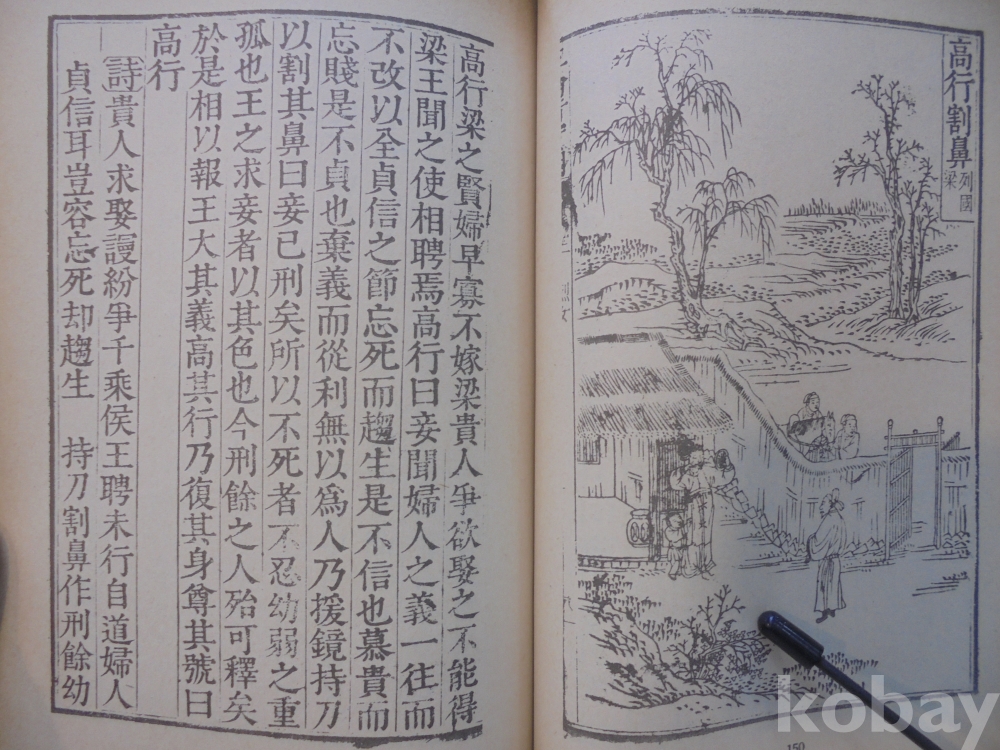 高行割鼻
列國
梁
高行梁之賢婦早寡不嫁梁貴人爭欲娶之不能得
梁王聞之使相聘焉高行曰妾聞婦人之義一往而
不改以全貞信之節忘死而趨生是不信也慕貴而
忘賤是不貞也棄義而從利無以爲人乃援鏡持刀
以割其鼻曰妾已刑矣所以不死者不忍幼弱之重
孤也王之求妾者以其色也今刑餘之人殆可釋矣
於是相以報王大其義高其行乃復其身尊其號曰
高行
詩貴人求娶謾紛爭千乘侯王聘未行自道婦人
貞信耳豈容忘死却趨生 持刀割鼻作刑餘幼
150
kobay